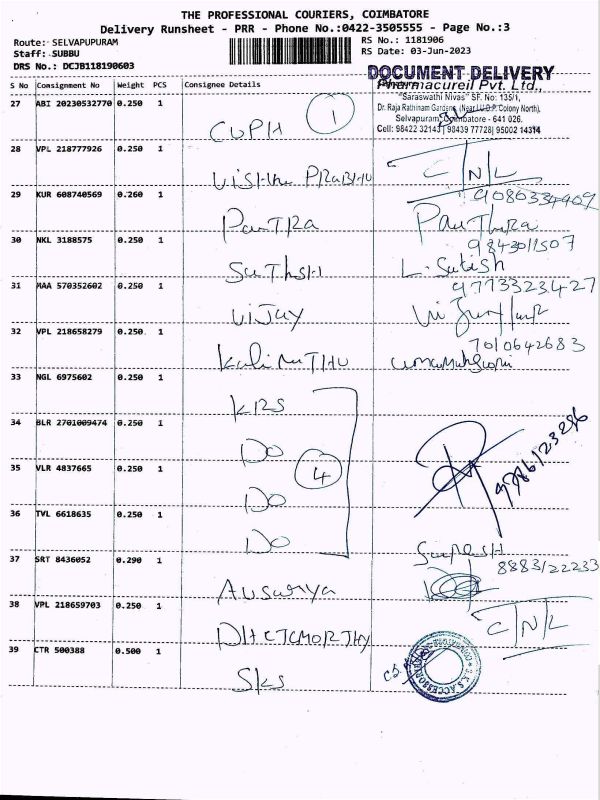 THE PROFESSIONAL COURIERS, COIMBATORE
Delivery Runsheet - PRR - Phone No.:0422-3505555 - Page No.:3
Route: SELVAPUPURAM
Staff: SUBBU
DRS No.: DCJB118190603
RS No.: 1181906
RS Date: 03-Jun-2023
DOCUMENT DELIVERY
S No Consignment No Weight PCS Consignee Details
Pharmacureil Pvt. Ltd.,
"Saraswathi Nivas" SF. No: 135/1,
Dr. Raja Rathinam Gardens, (Near I.U.D.P. Colony North),
Selvapuram, Coimbatore - 641 026.
Cell: 98422 32143 | 98439 77728 | 95002 14314
27 ABI 20230532770 0.250 1 CUPH 1
28 VPL 218777926 0.250 1 Vishnu PRABHU C/N/L
29 KUR 608740569 0.260 1 PanTRa 9080334909
30 NKL 3188575 0.250 1 SuThSH 9843011507
L. Sutish
31 MAA 570352602 0.250 1 ViJay 9773323427
32 VPL 218658279 0.250 1 KaliMuTHU 7010642683
33 NGL 6975602 0.250 1 KRS
34 BLR 2701009474 0.250 1 DO
35 VLR 4837665 0.250 1 DO 4
36 TVL 6618635 0.250 1 DO
37 SRT 8436052 0.290 1 8883122233
38 VPL 218659703 0.250 1 C/N/L
39 CTR 500388 0.500 1 SKS